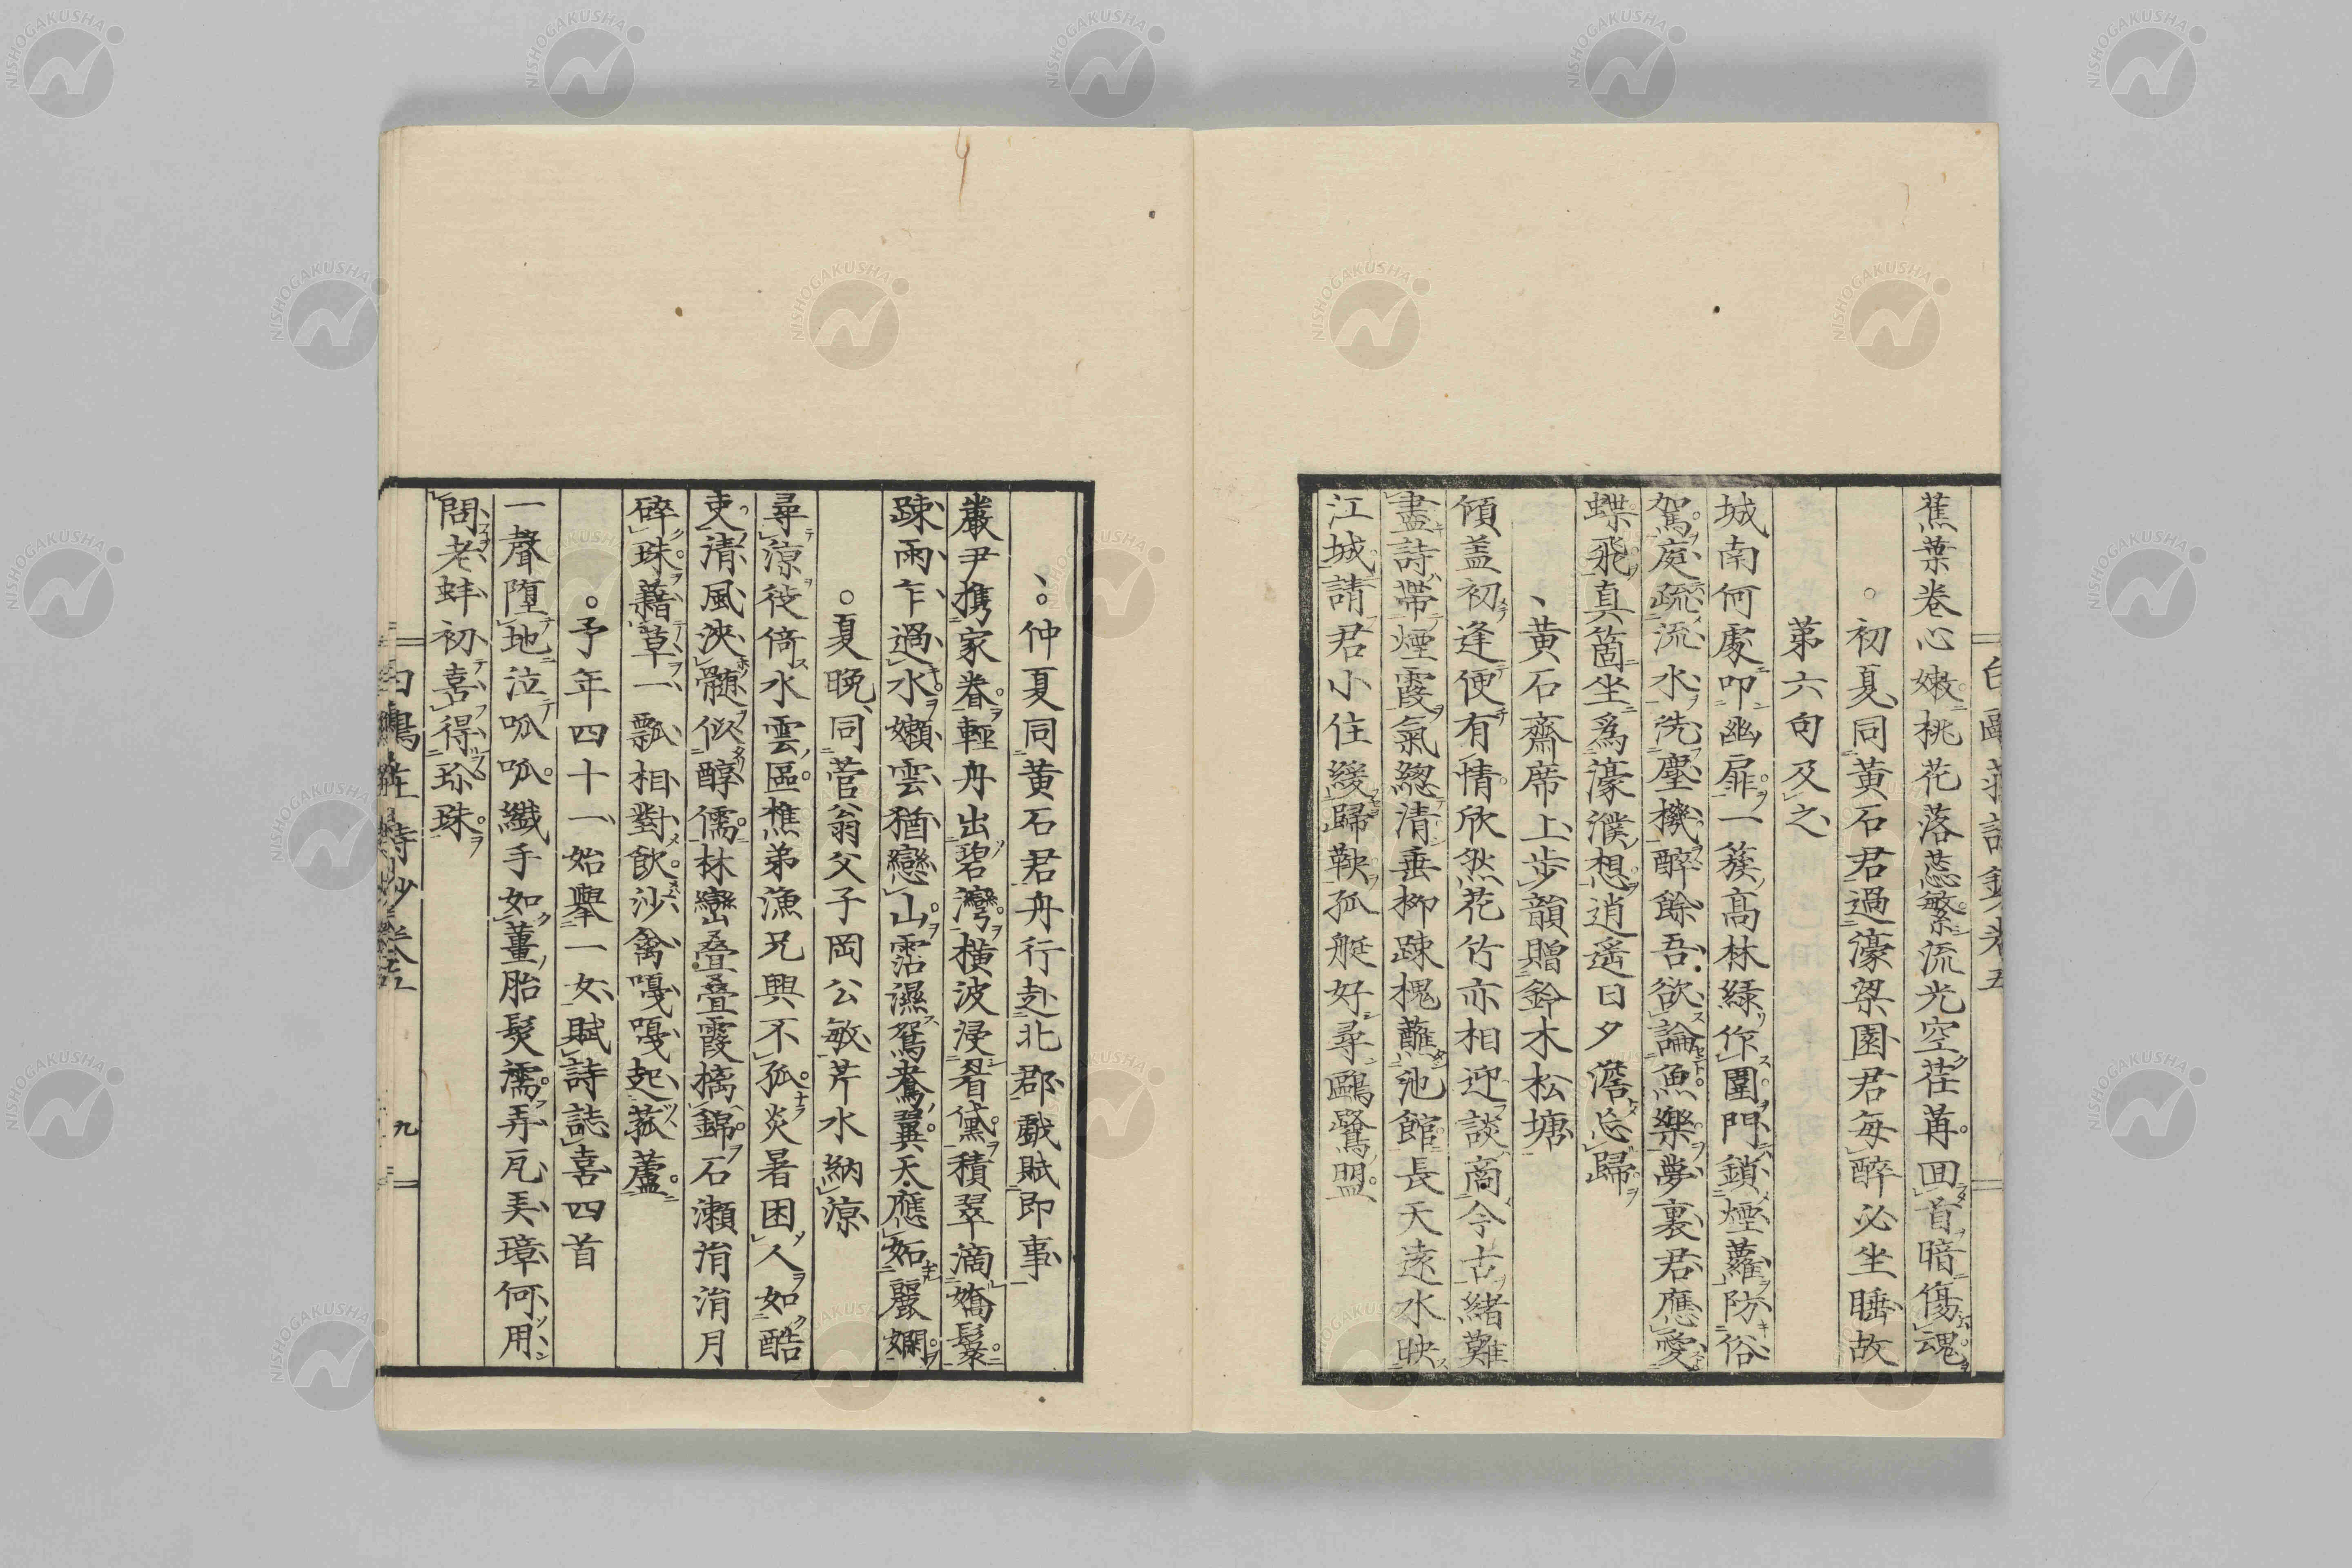 蕉葉卷心嫩桃花落蕊繁流光空荏苒囬首暗傷魂
初夏同黃石君過濠梁園君每醉必坐睡故
第六句及之
城南何處叩幽扉一簇高林綠作圍門鎖煙蘿防俗
駕庭疏流水洗塵機醉餘吾欲論魚樂夢裏君應愛
蝶飛真箇坐爲濠濮想逍遙日夕澹忘歸
黃石齋席上步韻贈鈴木松塘
傾盖初逢便有情欣然花竹亦相迎談商今古緒難
盡詩帶煙霞氣總清垂柳踈槐蘸池館長天遠水映
江城請君小住緩歸鞅孤艇好尋鷗鷺盟
仲夏同黃石君舟行赴北郡戲賦即事
巖尹携家眷輕舟出碧灣橫波浸眉黛積翠滴嬌鬟
踈雨乍過水嬾雲猶戀山霑濕鴛鴦翼天應妬麗嫻
夏晚同菅翁父子岡公敏芹水納涼
尋涼徙倚水雲區樵弟漁兄興不孤炎暑困人如酷
吏清風浹髓似醇儒林巒疊疊霞摛錦石瀨涓涓月
碎珠藉草一瓢相對飲沙禽嘎嘎起菰蘆
予年四十一始擧一女賦詩誌喜四首
一聲墮地泣呱呱纖手如荑胎髮濡弄瓦弄璋何用
問老蚌初喜得珍珠
九